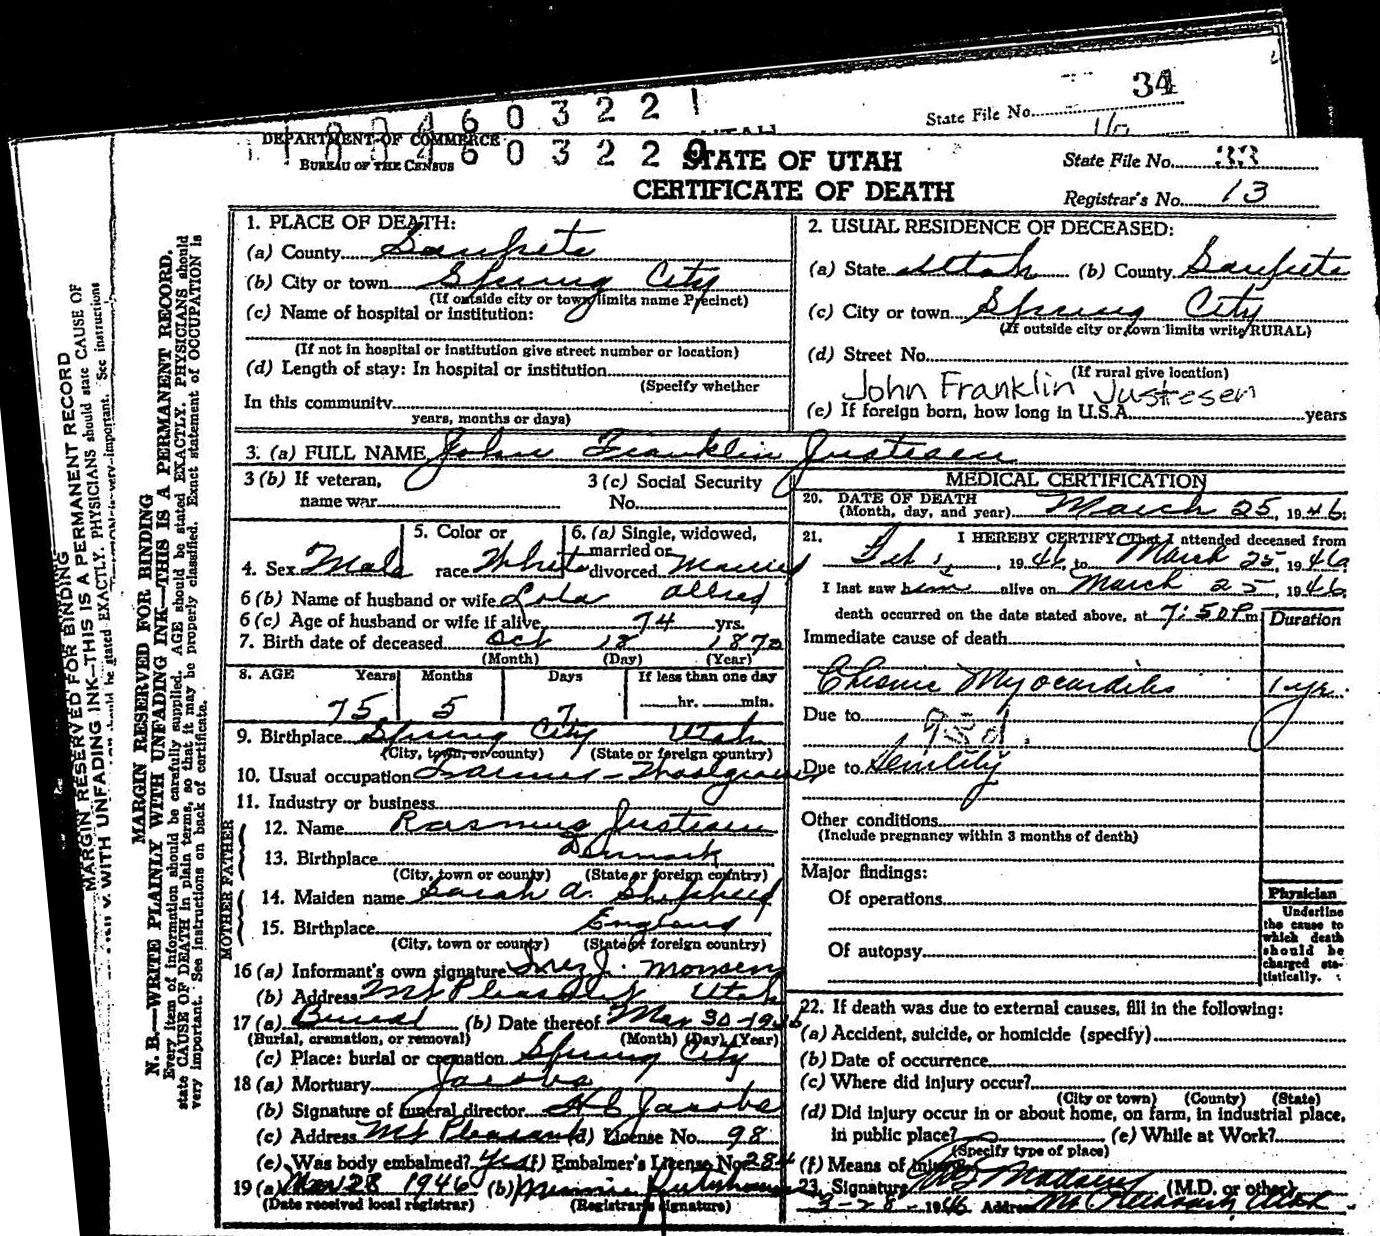 34
State File No.
1 0 0 4 6 0 3 2 2 1
DEPARTMENT OF COMMERCE
BUREAU OF THE CENSUS
STATE OF UTAH
CERTIFICATE OF DEATH
State File No. 33
Registrar's No. 13
MARGIN RESERVED FOR BINDING
N. B.—WRITE PLAINLY WITH UNFADING INK—THIS IS A PERMANENT RECORD.
Every item of information should be carefully supplied. AGE should be stated EXACTLY. PHYSICIANS should
state CAUSE OF DEATH in plain terms, so that it may be properly classified. Exact statement of OCCUPATION is
very important. See instructions on back of certificate.
1. PLACE OF DEATH:
(a) County Sanpete
(b) City or town Spring City
(If outside city or town limits name Precinct)
(c) Name of hospital or institution:
(If not in hospital or institution give street number or location)
(d) Length of stay: In hospital or institution
(Specify whether
In this community
years, months or days)
2. USUAL RESIDENCE OF DECEASED:
(a) State Utah (b) County Sanpete
(c) City or town Spring City
(If outside city or town limits write RURAL)
(d) Street No.
(If rural give location)
John Franklin Justesen
(e) If foreign born, how long in U.S.A. years
3. (a) FULL NAME John Franklin Justesen
3 (b) If veteran,
name war
3 (c) Social Security
No.
4. Sex Male
5. Color or
race White
6. (a) Single, widowed,
married or
divorced Married
6 (b) Name of husband or wife Lola Allred
6 (c) Age of husband or wife if alive 74 yrs.
7. Birth date of deceased Oct 18 1870
(Month) (Day) (Year)
8. AGE Years Months Days If less than one day
75 5 7 hr. min.
9. Birthplace Spring City Utah
(City, town, or county) (State or foreign country)
10. Usual occupation Farmer - Woolgrower
11. Industry or business
FATHER
12. Name Rasmus Justesen
13. Birthplace Denmark
(City, town or county) (State or foreign country)
MOTHER
14. Maiden name Sarah A. Shepherd
15. Birthplace England
(City, town or county) (State or foreign country)
16 (a) Informant's own signature Inez J. Monsen
(b) Address Mt Pleasant Utah
17 (a) Burial (b) Date thereof Mar 30 - 1946
(Burial, cremation, or removal) (Month) (Day) (Year)
(c) Place: burial or cremation Spring City
18 (a) Mortuary Jacobs
(b) Signature of funeral director H C Jacobs
(c) Address Mt Pleasant (d) License No. 98
(e) Was body embalmed? Yes (f) Embalmer's License No 284
19 (a) Mar 28 1946 (b) Minnie
(Date received local registrar) (Registrar's signature)
MEDICAL CERTIFICATION
20. DATE OF DEATH
(Month, day, and year) March 25, 1946.
21. I HEREBY CERTIFY, That I attended deceased from
Feb 1, 1946, to March 25, 1946
I last saw him alive on March 25, 1946.
death occurred on the date stated above, at 7:50 P m
Duration
Immediate cause of death
Chronic Myocarditis 1 yr.
Due to
Due to Senility
Other conditions
(Include pregnancy within 3 months of death)
Major findings:
Of operations
Of autopsy
Physician
Underline
the cause to
which death
should be
charged sta-
tistically.
22. If death was due to external causes, fill in the following:
(a) Accident, suicide, or homicide (specify)
(b) Date of occurrence
(c) Where did injury occur?
(City or town) (County) (State)
(d) Did injury occur in or about home, on farm, in industrial place,
in public place? (e) While at Work?
(Specify type of place)
(f) Means of injury
23. Signature Madsen (M.D. or other)
3-28-1946 Address Mt Pleasant, Utah